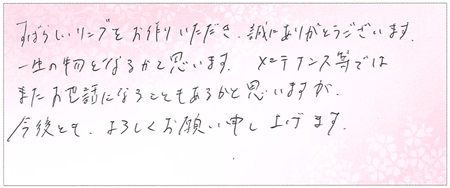 すばらしいリングをお作りいただき、誠にありがとうございます。
一生の物となるかと思います。メンテナンス等では
またお世話になることもあるかと思いますが、
今後とも、よろしくお願い申し上げます。